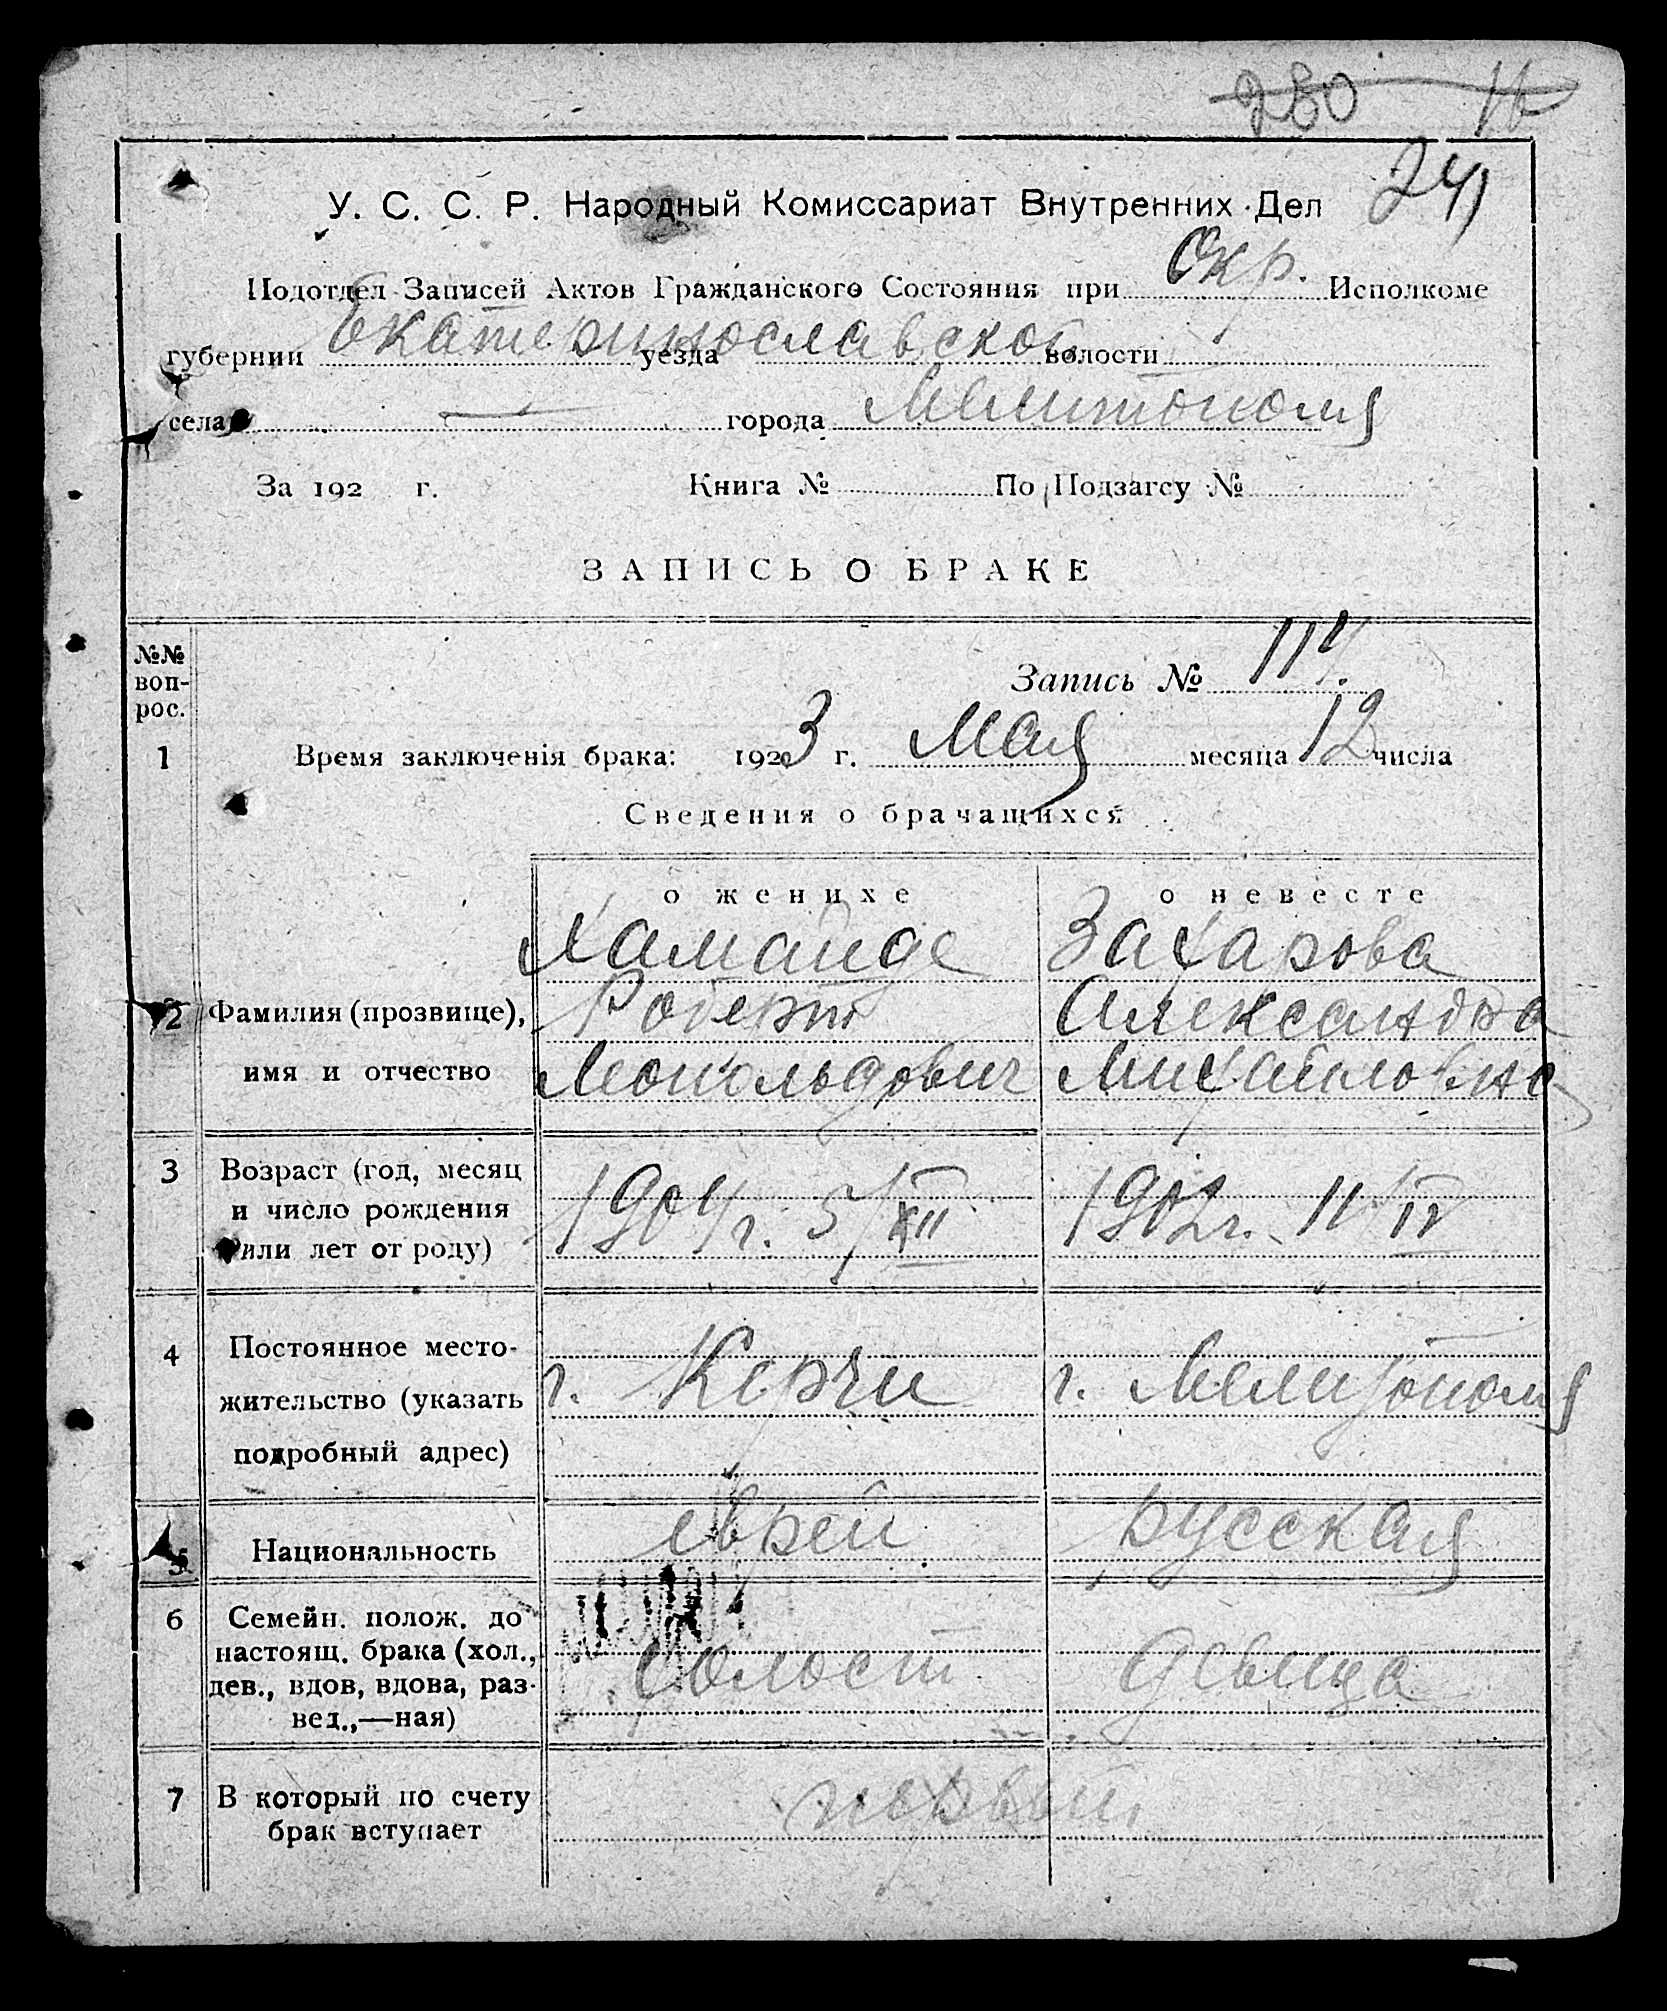 280 16
241
У. С. С. Р. Народный Комиссариат Внутренних Дел
Подотдел Записей Актов Гражданского Состояния при Окр. Исполкоме
губернии Екатеринославской уезда волости
села — города Мелитополя
За 192 г. Книга № По Подзагсу №
ЗАПИСЬ О БРАКЕ
№№ воп-
рос.
Запись № 114.
1 Время заключенія брака: 1923 г. Мая месяца 12 числа
Сведения о брачащихся
о женихе о невесте
Хамайде Захарова
2 Фамилия (прозвище), Роберт Александра
имя и отчество Леопольдович Михайловна
3 Возраст (год, месяц
и число рождения 1904 г. 5/XII 1902 г. 11/IV
или лет от роду)
4 Постоянное место-
жительство (указать г. Керчи г. Мелитополя
подробный адрес)
5 Национальность еврей русская
6 Семейн. полож. до
настоящ. брака (хол.,
дев., вдов, вдова, раз- холост девица
вед.,—ная)
7 В который по счету первый
брак вступает